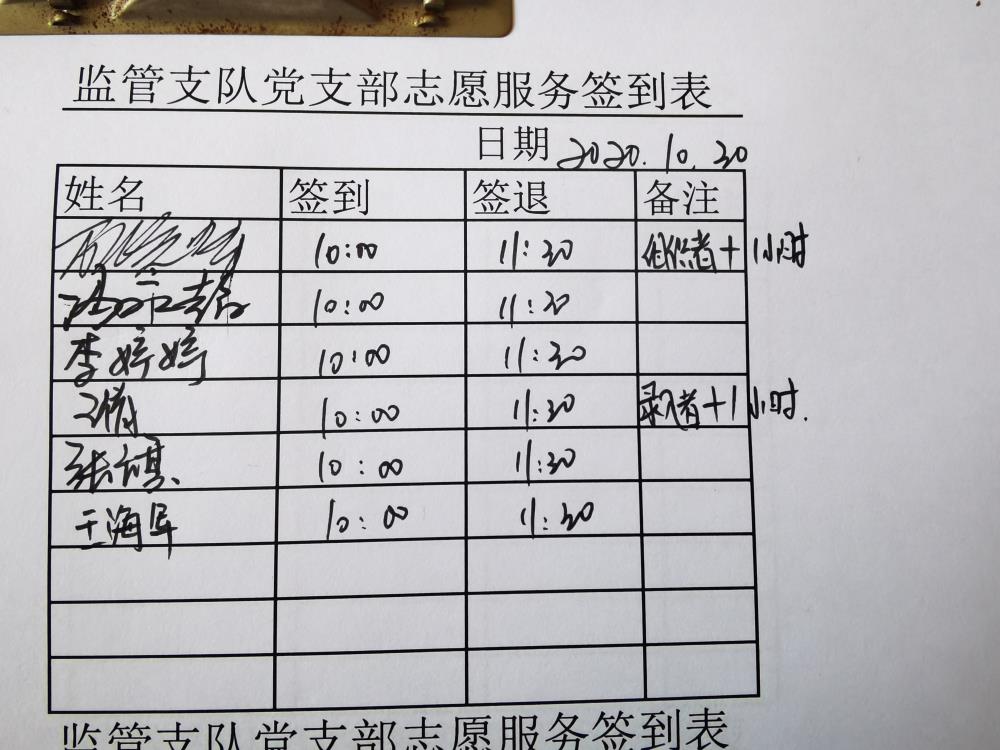 监管支队党支部志愿服务签到表
日期 2020.10.30
姓名 签到 签退 备注
10:00 11:30 组织者+1小时
10:00 11:30
李婷婷 10:00 11:30
10:00 11:30 录入者+1小时.
张祺 10:00 11:30
王海军 10:00 11:30
监管支队党支部志愿服务签到表